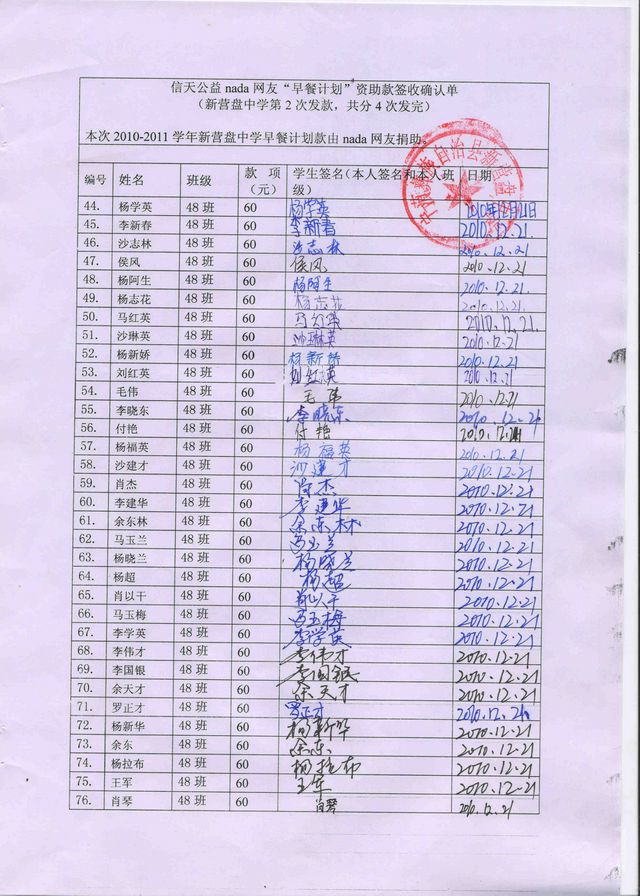 信天公益 nada 网友“早餐计划”资助款签收确认单
（新营盘中学第 2 次发款，共分 4 次发完）
本次 2010-2011 学年新营盘中学早餐计划款由 nada 网友捐助。
编号 姓名 班级 款 项（元） 学生签名（本人签名和本人班级） 日期
44. 杨学英 48 班 60 杨学英 2010年12月21日
45. 李新春 48 班 60 李新春 2010.12.21.
46. 沙志林 48 班 60 沙志林 2010.12.21
47. 侯风 48 班 60 侯风 2010.12.21
48. 杨阿生 48 班 60 杨阿生 2010.12.21.
49. 杨志花 48 班 60 杨志花 2010.12.21.
50. 马红英 48 班 60 马红英 2010.12.21.
51. 沙琳英 48 班 60 沙琳英 2010.12.21
52. 杨新娇 48 班 60 杨新娇 2010.12.21
53. 刘红英 48 班 60 刘红英 2010.12.21
54. 毛伟 48 班 60 毛伟 2010.12.21
55. 李晓东 48 班 60 李晓东 2010.12-21
56. 付艳 48 班 60 付艳 2010.12.21
57. 杨福英 48 班 60 杨福英 2010.12.21
58. 沙建才 48 班 60 沙建才 2010.12.21
59. 肖杰 48 班 60 肖杰 2010.12.21
60. 李建华 48 班 60 李建华 2010.12.21
61. 余东林 48 班 60 余东林 2010.12.21
62. 马玉兰 48 班 60 马玉兰 2010.12.21
63. 杨晓兰 48 班 60 杨晓兰 2010.12.21
64. 杨超 48 班 60 杨超 2010.12.21
65. 肖以干 48 班 60 肖以干 2010.12.21
66. 马玉梅 48 班 60 马玉梅 2010.12.21
67. 李学英 48 班 60 李学英 2010.12.21
68. 李伟才 48 班 60 李伟才 2010.12.21
69. 李国银 48 班 60 李国银 2010.12.21
70. 余天才 48 班 60 余天才 2010.12.21
71. 罗正才 48 班 60 罗正才 2010.12.21
72. 杨新华 48 班 60 杨新华 2010.12.21
73. 余东 48 班 60 余东 2010.12.21
74. 杨拉布 48 班 60 杨拉布 2010.12.21
75. 王军 48 班 60 王军 2010.12-21
76. 肖琴 48 班 60 肖琴 2010.12.21